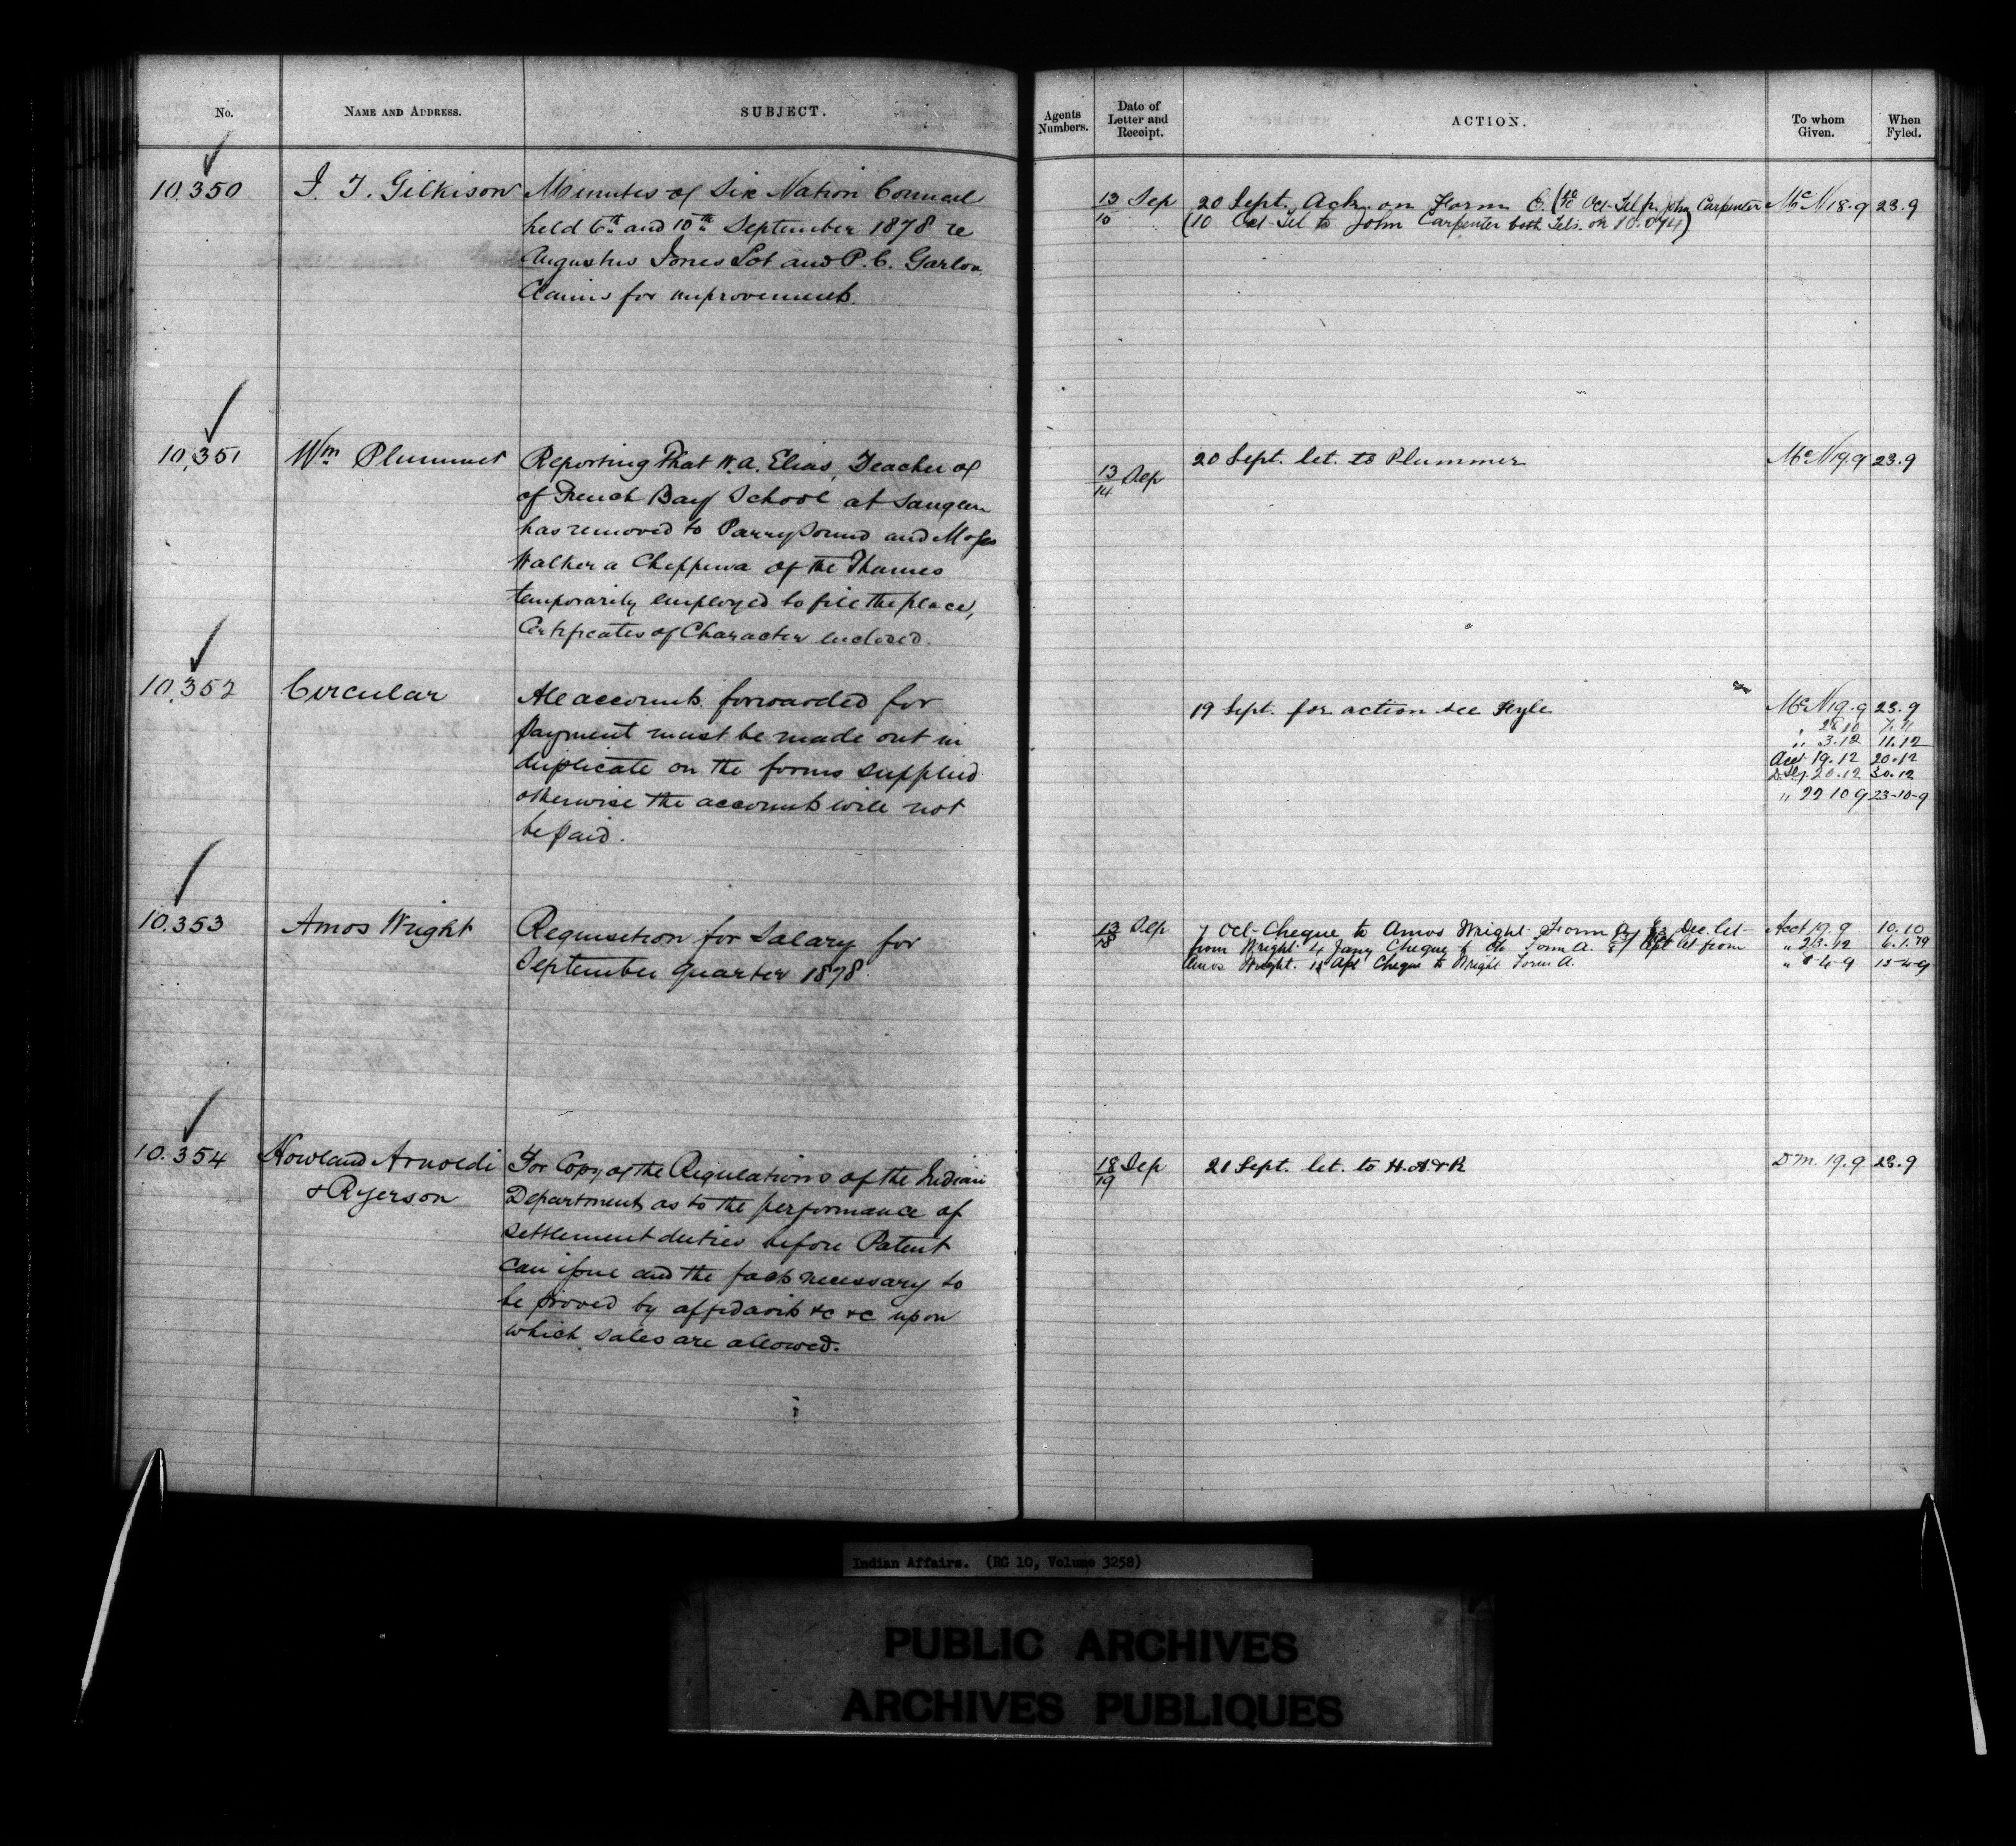 No.
NAME AND ADDRESS.
SUBJECT.
Agents Numbers.
Date of Letter and Receipt.
ACTION.
To whom Given.
When Fyled.
10,350
J. T. Gilkison
Minutes of Six Nation Council
held 6th and 10th September 1878 re
Augustus Jones Lot and P. C. Garlow
Claims for improvements.
13/16 Sep
20 Sept. Ack. on Form C. ( Oct Tel fr. John Carpenter
(10 Oct Tel to John Carpenter both Tels. on 10.074)
McN 18.9
23.9
10,351
Wm Plummer
Reporting That W. A. Elias, Teacher of
of French Bay School at Saugeen
has removed to Parry Sound and Moses
Walker a Chippewa of the Thames
temporarily employed to fill the place,
Certificates of Character enclosed.
13/14 Sep
20 Sept. let. to Plummer
McN 19.9
23.9
10,352
Circular
All accounts forwarded for
payment must be made out in
duplicate on the forms supplied
otherwise the accounts will not
be paid.
19 Sept. for action see Fyle
McN 19.9 23.9
" 28.10 7.11
" 3.12 11.12
Acct 19.12 20.12
20.12 30.12
" 22 10 9 23-10-9
10.353
Amos Wright
Requisition for Salary for
September quarter 1878
13/18 Sep
7 Oct - Cheque to Amos Wright Form A Dec. let -
from Wright 4 Jany Cheque to do Form A. Apl let from
Amos Wright. 15 Apl Cheque to Wright Form A.
Acct 19.9 10.10
" 23.12 6.1.79
" 8-4-9 15-4-9
10.354
Howland Arnoldi
& Ryerson
For Copy of the Regulations of the Indian
Department as to the performance of
settlement duties before Patent
can issue and the facts necessary to
be proved by affidavits &c &c upon
which sales are allowed.
18/19 Sep
21 Sept. let. to H. A & R
DM. 19.9
23.9
Indian Affairs. (RG 10, Volume 3258)
PUBLIC ARCHIVES
ARCHIVES PUBLIQUES